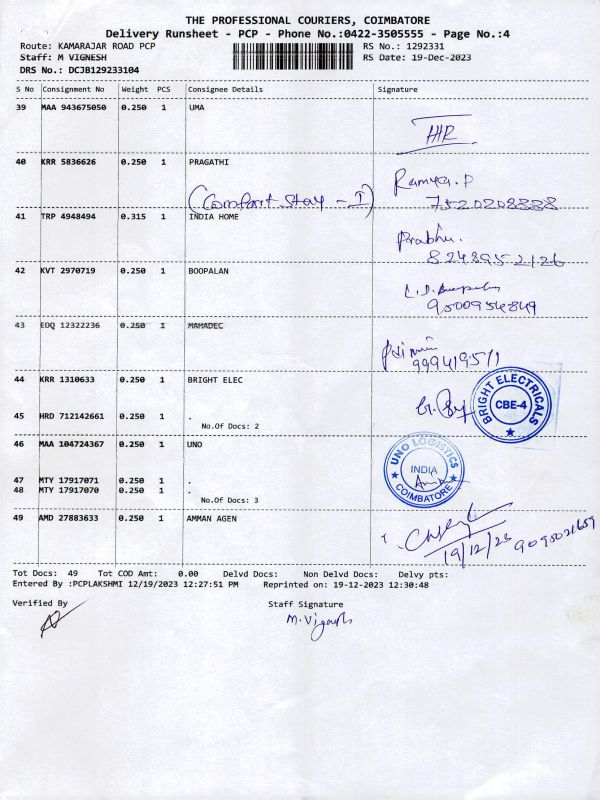 THE PROFESSIONAL COURIERS, COIMBATORE
Delivery Runsheet - PCP - Phone No.:0422-3505555 - Page No.:4
Route: KAMARAJAR ROAD PCP RS No.: 1292331
Staff: M VIGNESH RS Date: 19-Dec-2023
DRS No.: DCJB129233104
S No Consignment No Weight PCS Consignee Details Signature
39 MAA 943675050 0.250 1 UMA
40 KRR 5836626 0.250 1 PRAGATHI Ramya.P
(Comfort Stay - I) 7520202888
41 TRP 4948494 0.315 1 INDIA HOME
Prabhu.
8248952126
42 KVT 2970719 0.250 1 BOOPALAN
9500954849
43 EDQ 12322236 0.250 1 MAHADEC
999419511
44 KRR 1310633 0.250 1 BRIGHT ELEC
BRIGHT ELECTRICALS
CBE-4
45 HRD 712142661 0.250 1 .
No.Of Docs: 2
46 MAA 104724367 0.250 1 UNO
UNO LOGISTICS
INDIA
COIMBATORE
47 MTY 17917071 0.250 1 .
48 MTY 17917070 0.250 1 .
No.Of Docs: 3
49 AMD 27883633 0.250 1 AMMAN AGEN
19/12/23 9095021659
Tot Docs: 49 Tot COD Amt: 0.00 Delvd Docs: Non Delvd Docs: Delvy pts:
Entered By :PCPLAKSHMI 12/19/2023 12:27:51 PM Reprinted on: 19-12-2023 12:30:48
Verified By Staff Signature
M.Vignesh